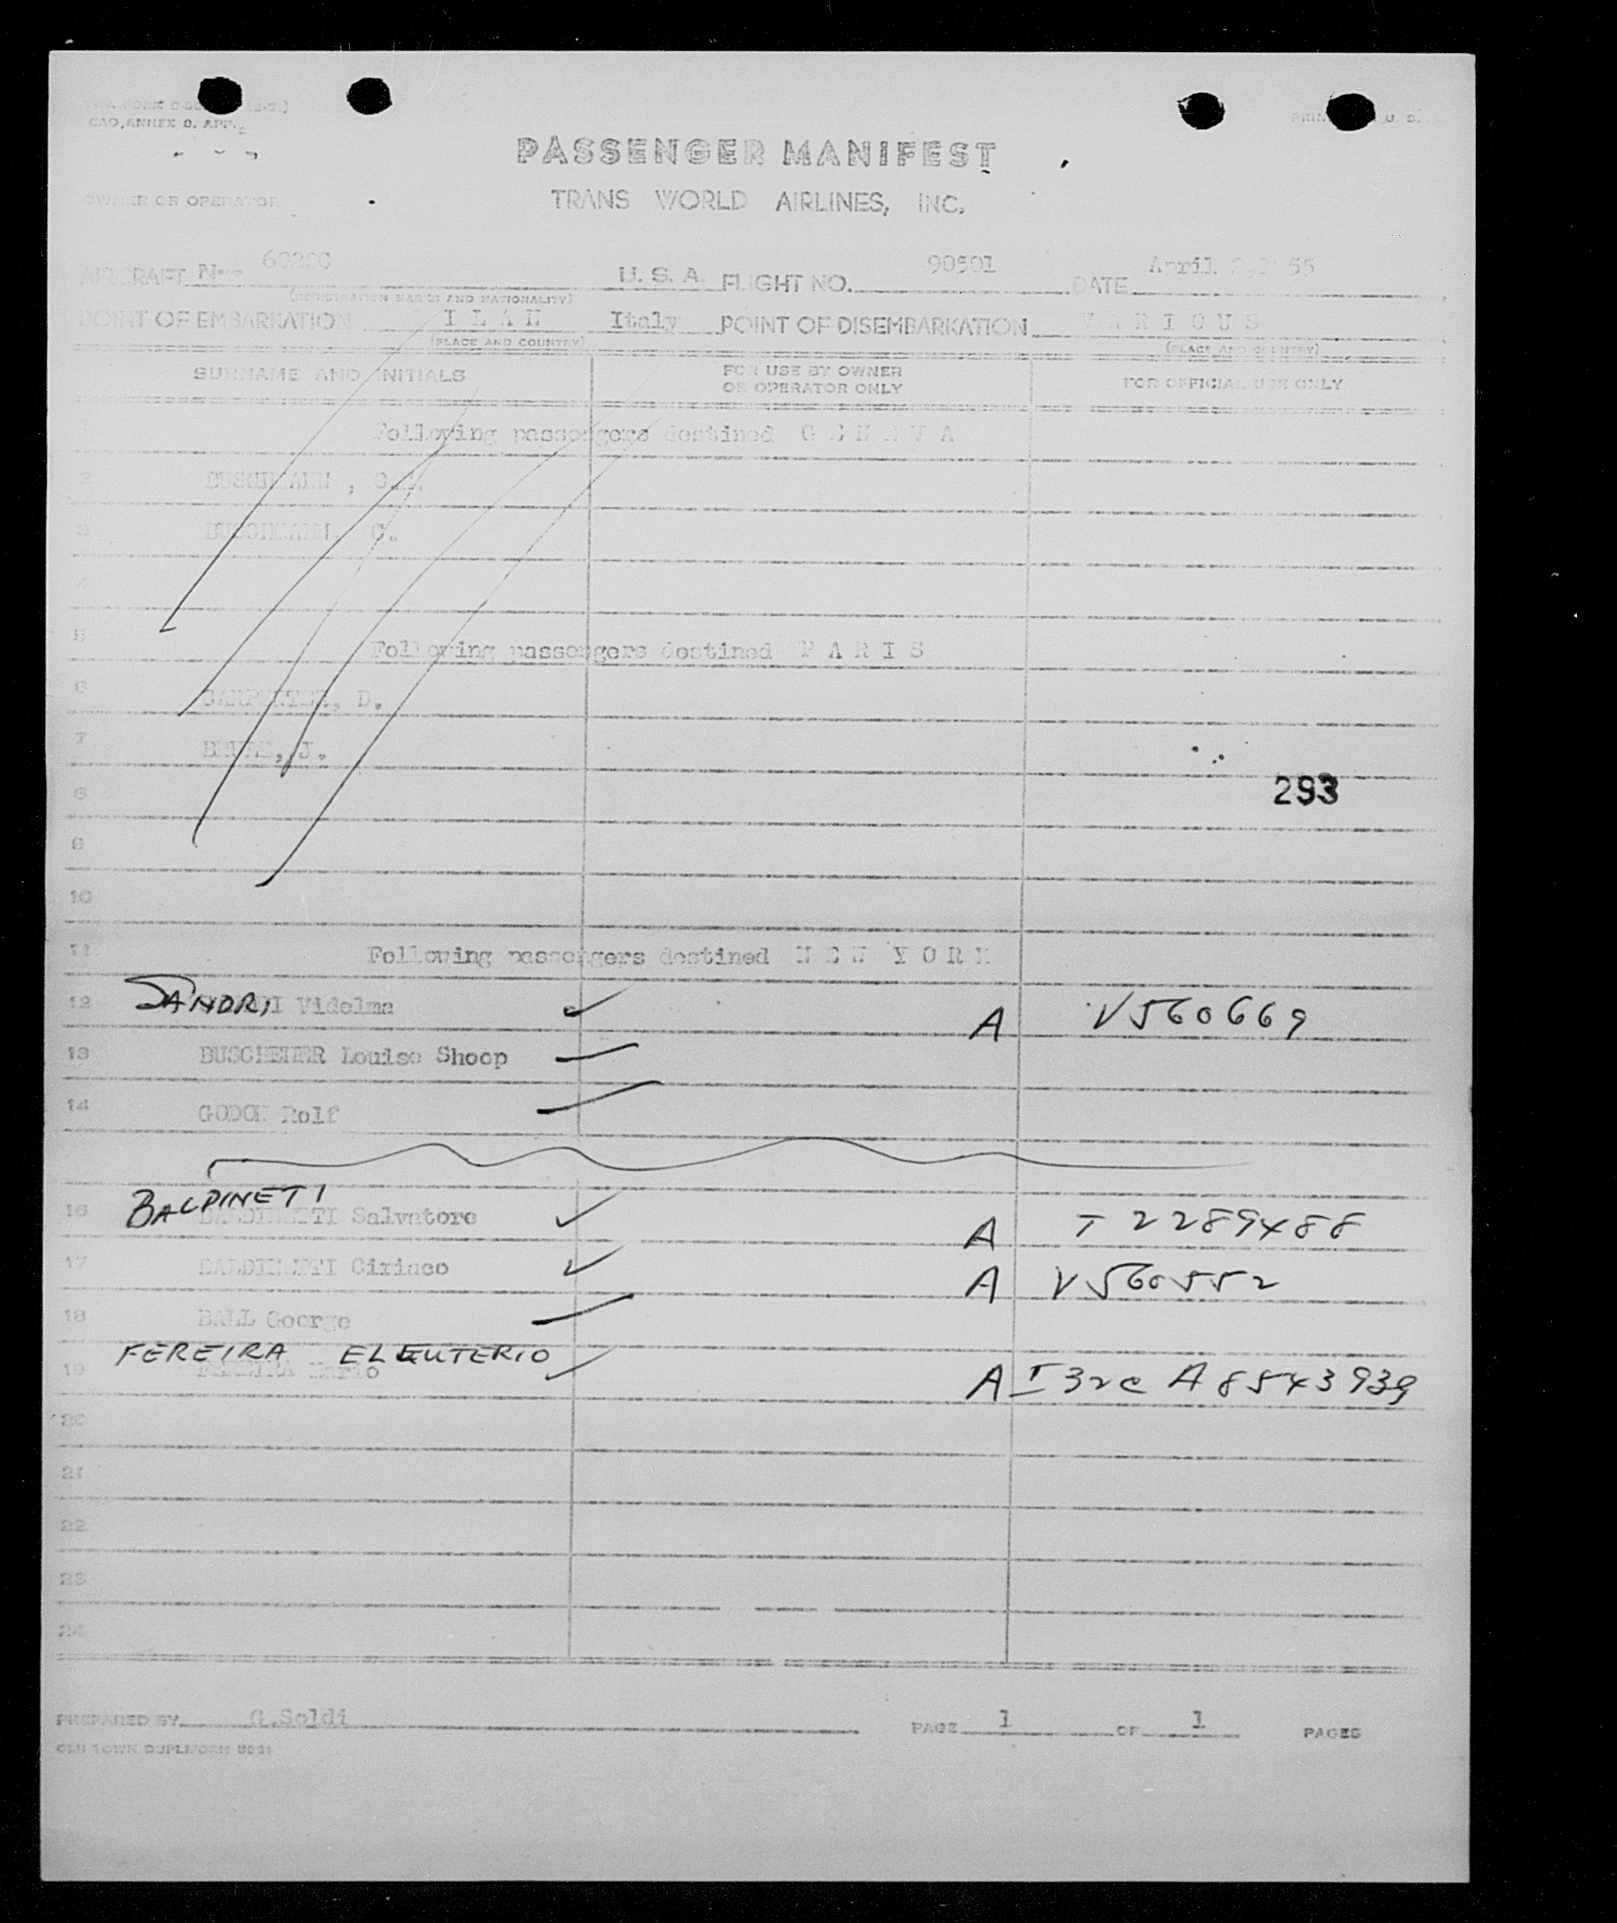 CAO, ANNEX 9, APP.
PASSENGER MANIFEST
OWNER OR OPERATOR
TRANS WORLD AIRLINES, INC.
AIRCRAFT U. S. A. FLIGHT NO. 90501 DATE April 55
(REGISTRATION MARKS AND NATIONALITY)
POINT OF EMBARKATION I L A N Italy POINT OF DISEMBARKATION V A R I O U S
(PLACE AND COUNTRY) (PLACE AND COUNTRY)
SURNAME AND INITIALS FOR USE BY OWNER OR OPERATOR ONLY FOR OFFICIAL USE ONLY
Following passengers destined G E N E V A
2 BUSCHMANN,
3 BUSCHMANN, C.
4
5 Following passengers destined P A R I S
6 CARPENTER, D.
7 J.
293
8
9
10
11 Following passengers destined N E W Y O R K
12 SANDRI Videlma A V560669
13 Louise Shoop
14 GODOH Rolf
BALDINETI
16 Salvatore A T2289488
17 Ciriaco A V560552
18 BALL George
FEREIRA ELEUTERIO
19 A I32c A8543939
20
21
22
23
24
PREPARED BY G.Soldi PAGE 1 OF 1 PAGES